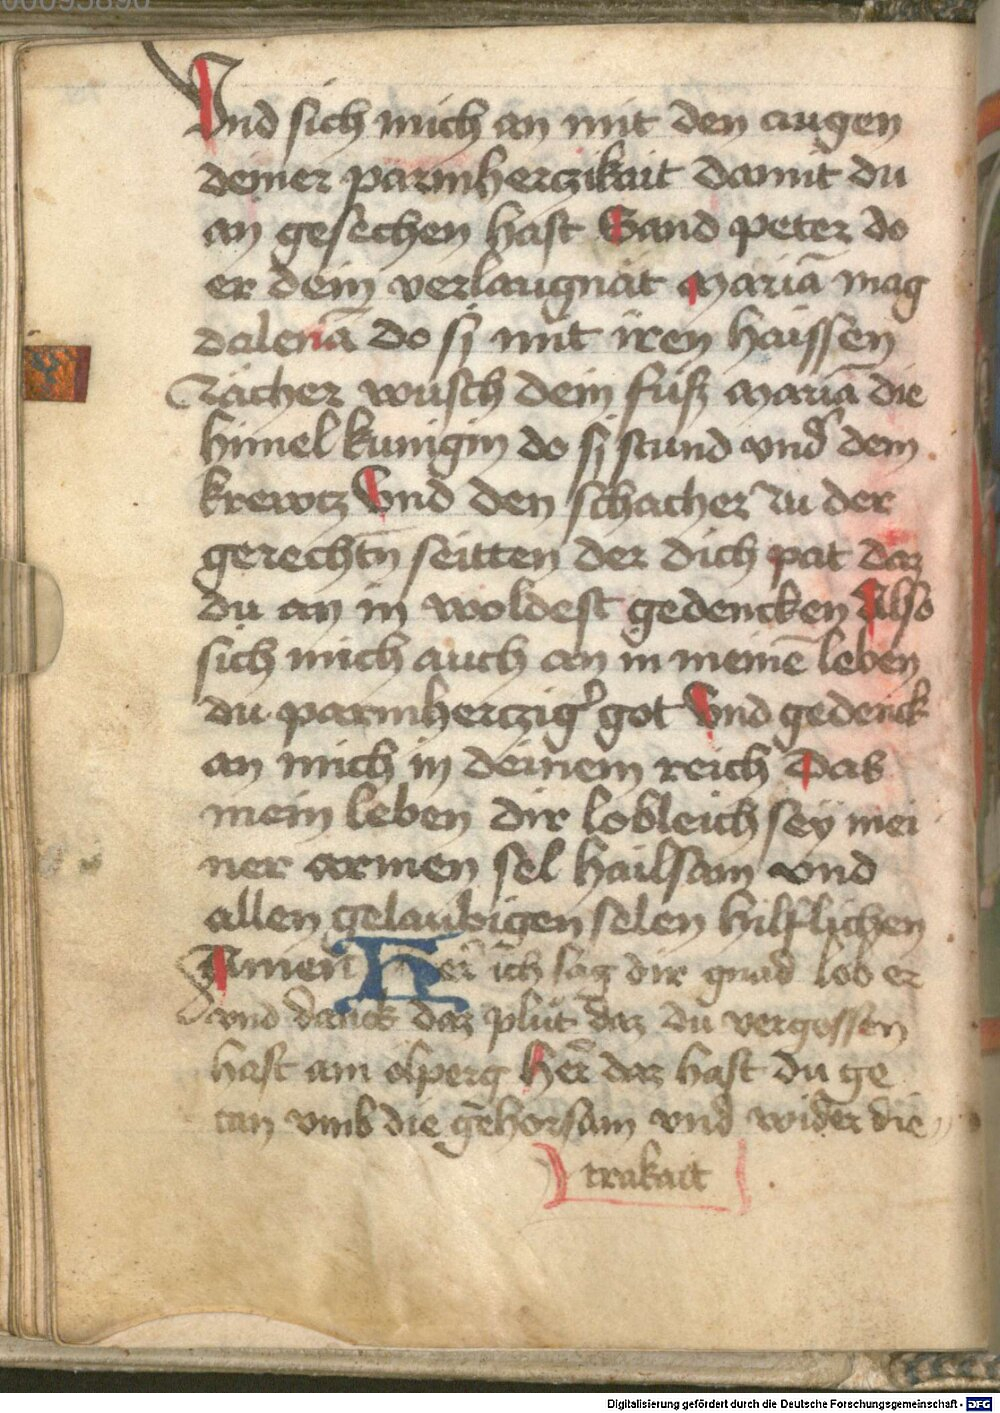 00095890
Vnd sich mich an mit den augen
deiner parmherczikait damit du
an gesechen hast Sand peter do
er dein verlaugnät Mariā mag
daleniā do sÿ mit iren haissen
Zächer wusch dein füsz Mariā die
himel kunigin do sÿ stund vnd̛ dem
krewtz Vnd den schacher zu der
gerechtn̄ seitten der dich pat daz
du an in woldest gedencken Also
sich mich auch an in meinē leben
du parmherczig̛ got Vnd gedenck
an mich in deinem reich Das
mein leben dir lobleich seÿ mei
ner armen sel hailsam vnd
allen gelaubigen selen hilflichen
Amen Her̄ ich sag dir gnad lob er
vnd danck daz plüt daz du vergossen
hast am olperg Her̄ daz hast du ge
tan vmb die gehorsam vnd wider die
trakait
Digitalisierung gefördert durch die Deutsche Forschungsgemeinschaft - DFG